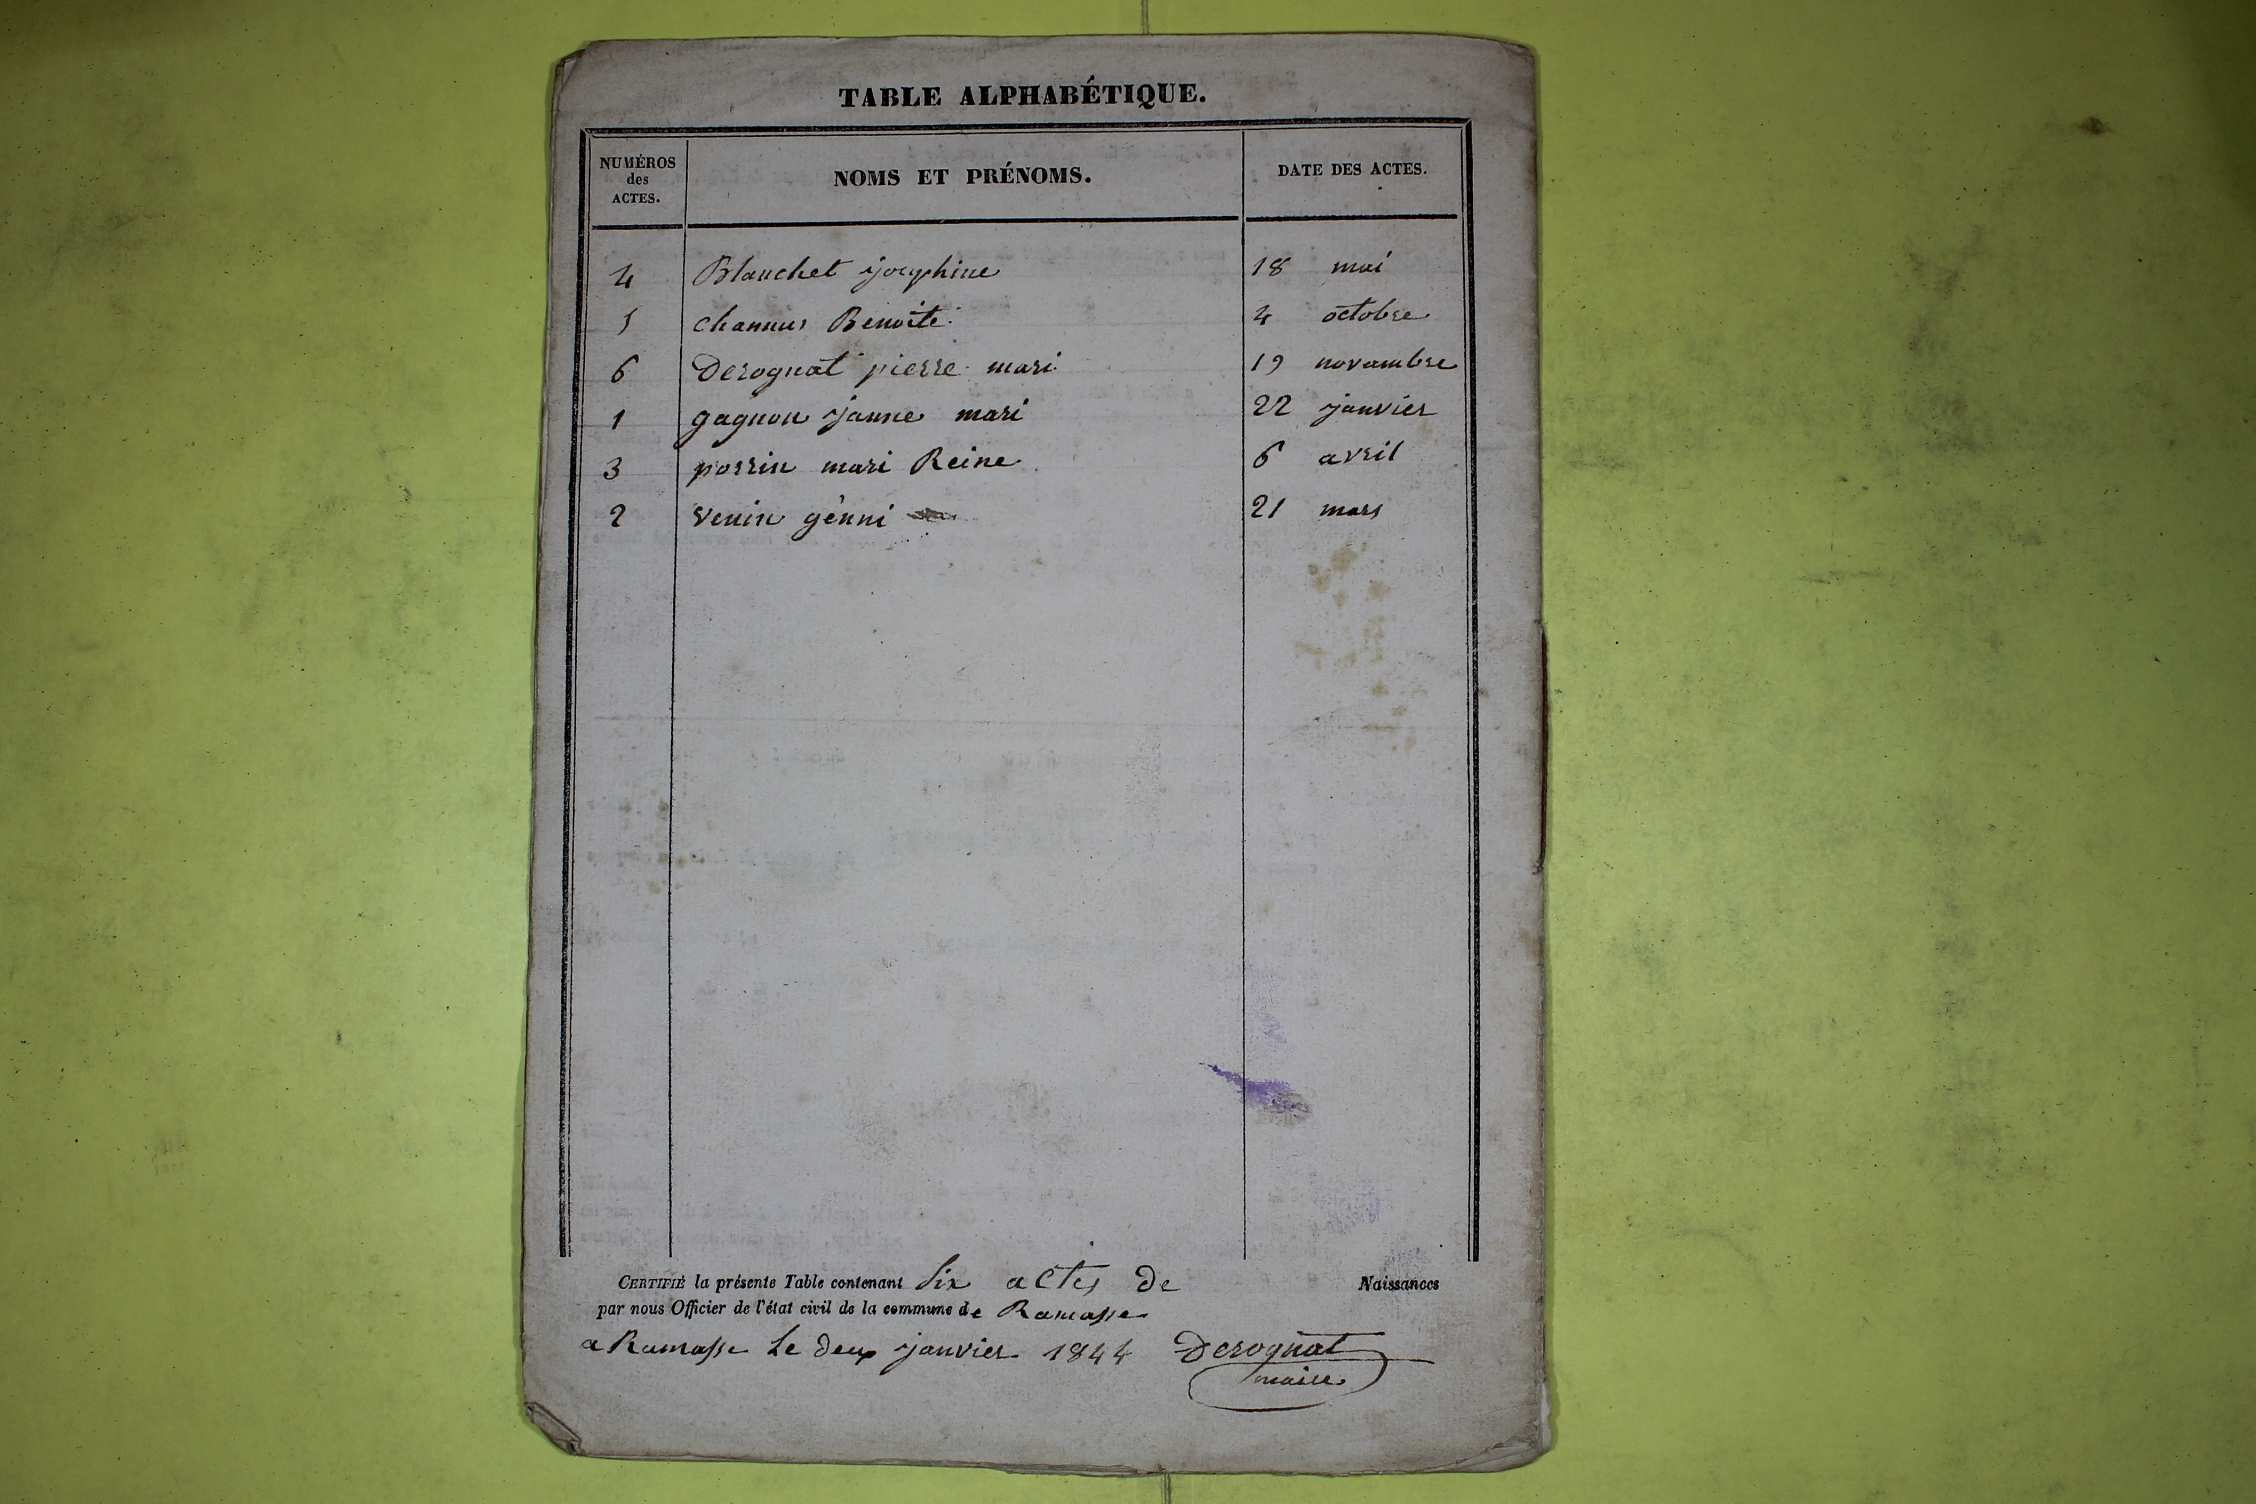 TABLE ALPHABÉTIQUE.
NUMÉROS des ACTES. NOMS ET PRÉNOMS. DATE DES ACTES.
4 Blanchet josephine 18 mai
5 Benoite 4 octobre
6 Derognat pierre mari 19 novambre
1 gagnon janne mari 22 janvier
3 perrin mari Reine 6 avril
2 venin génni 21 mars
CERTIFIÉ la présente Table contenant Six actes De Naissances
par nous Officier de l'état civil de la commune de Ramasse
a Ramasse Le deux janvier 1844 Derognat
maire